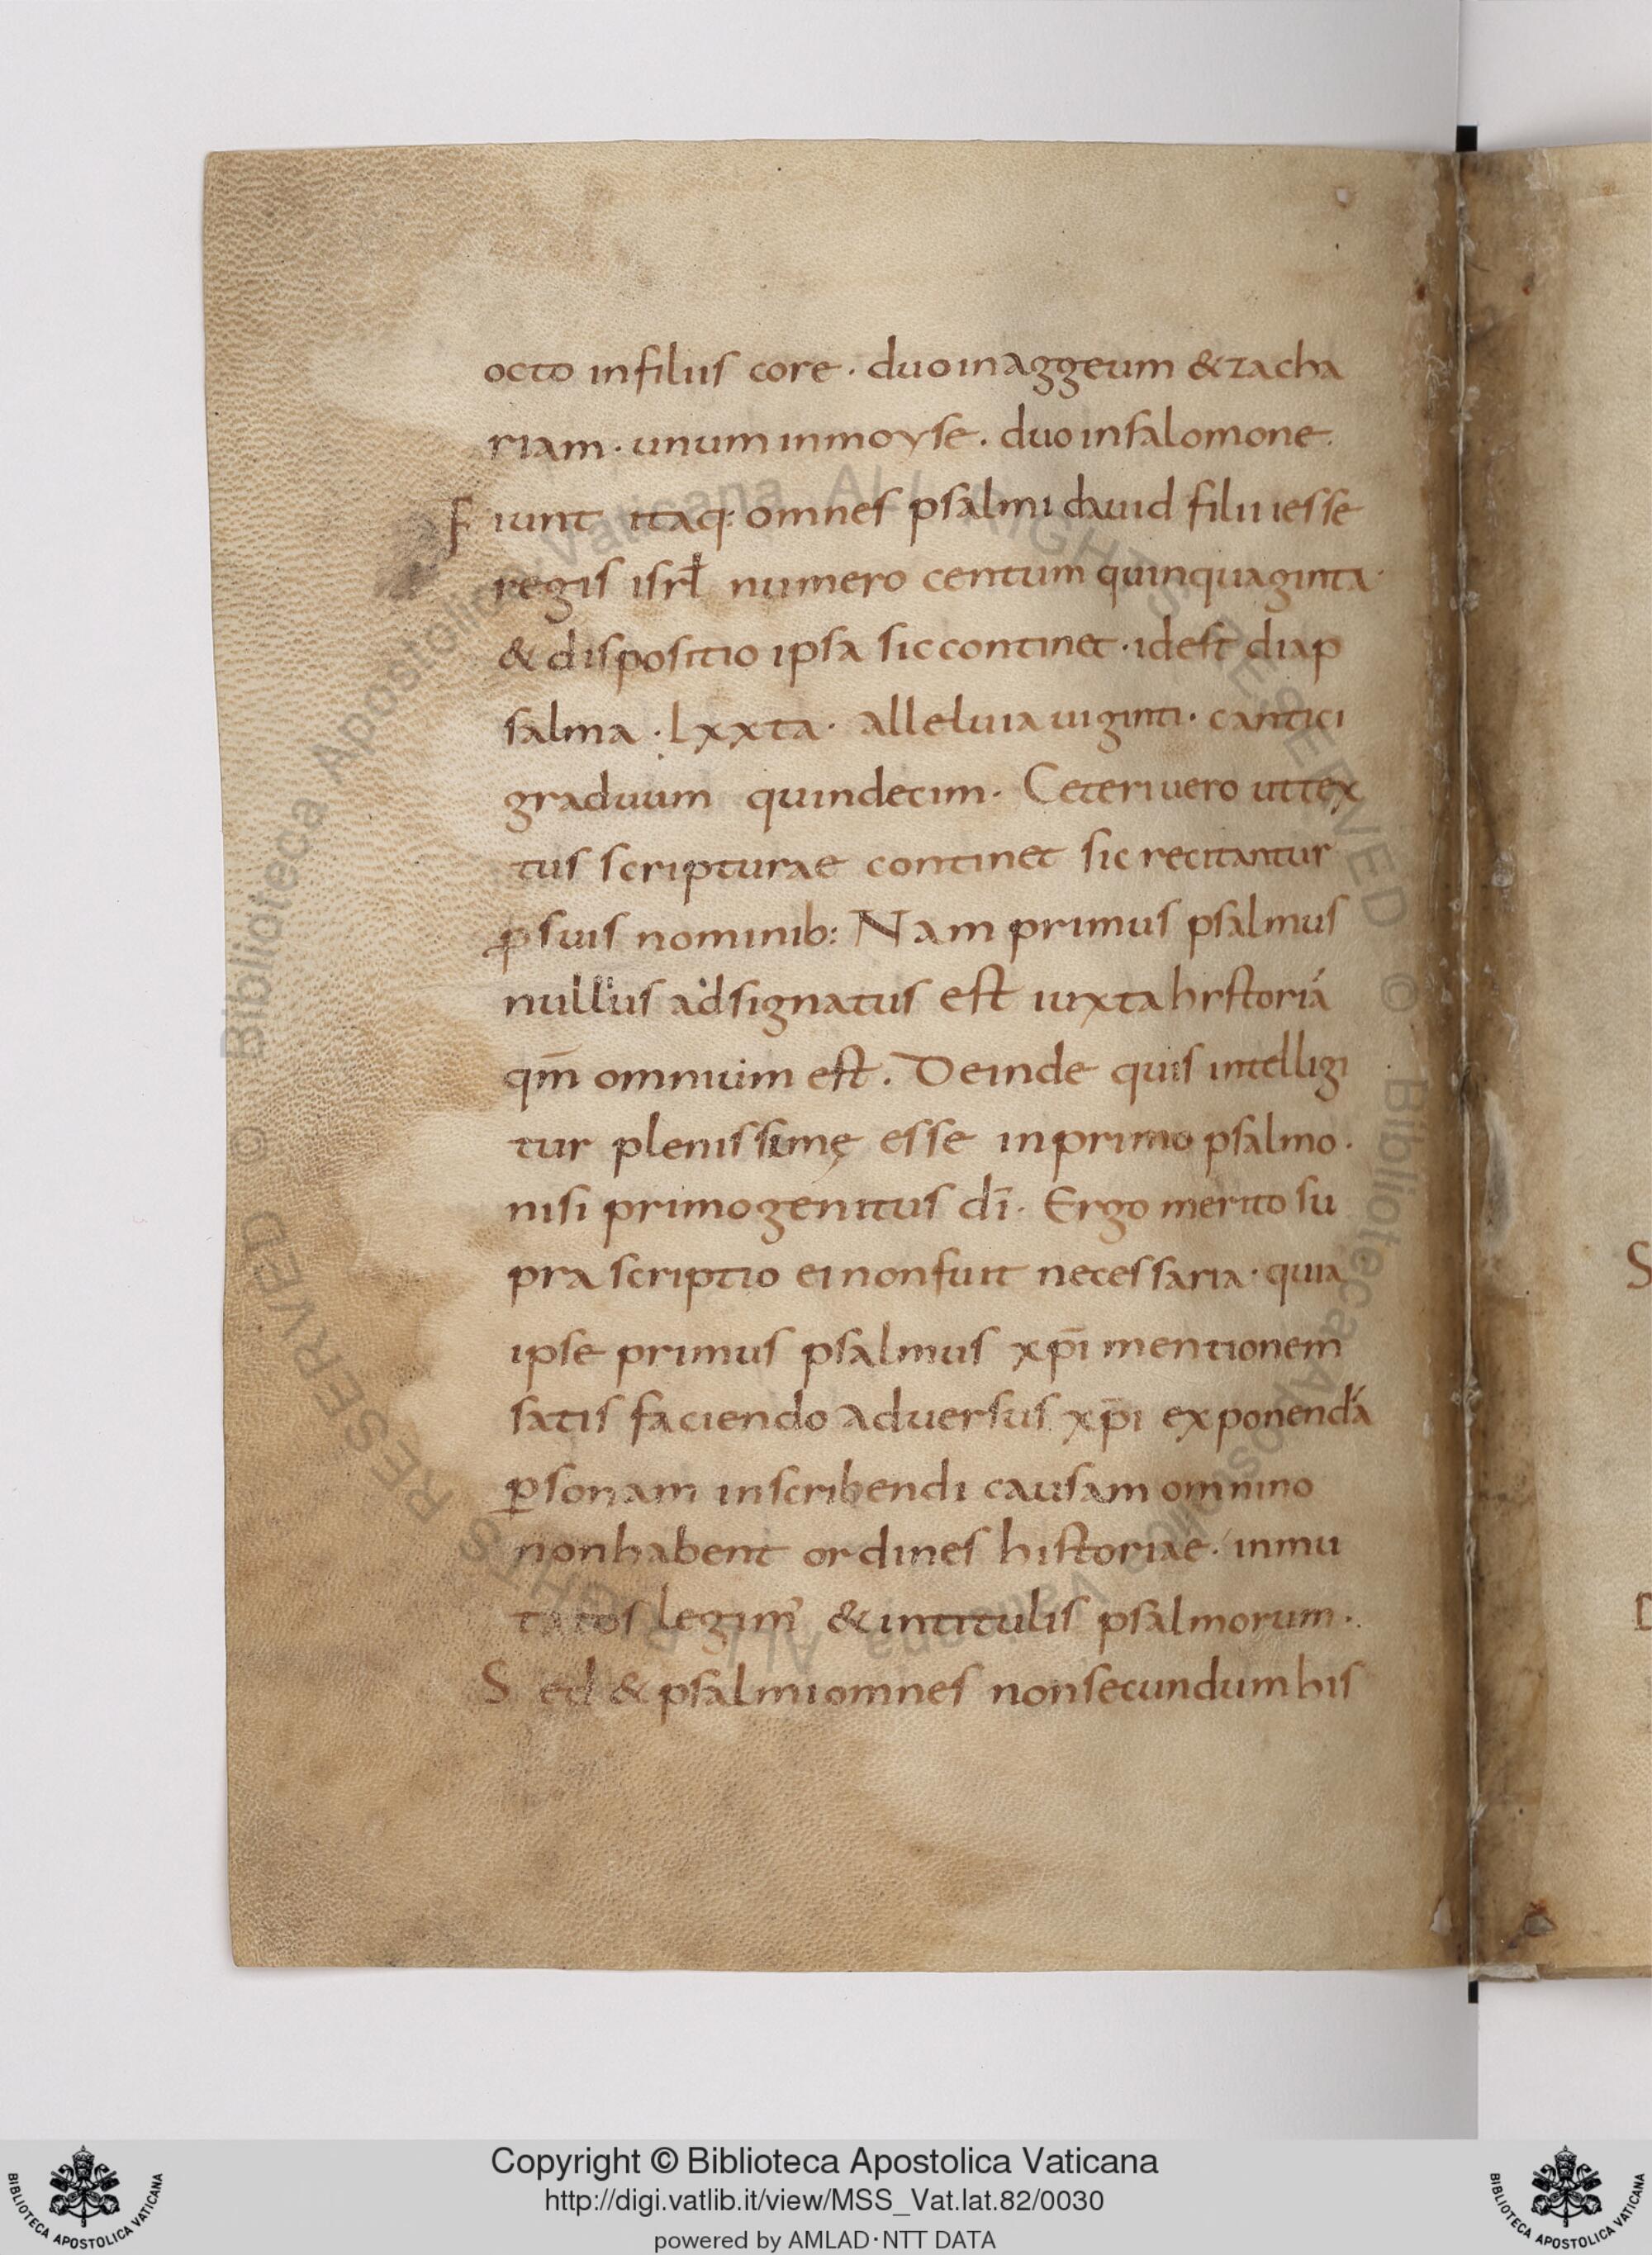 octo infiliis core · duo inaggeum & zacha
riam · unum inmoyse · duo insalomone.
Fiunt itaq: omnes psalmi dauid filii iesse
regis isrł numero centum quinquaginta·
& dispositio ipsa sic continet · idest diap
salma · Lxxta · alleluia uiginti · cantici
graduum quindecim · Ceteri uero ut tex
tus scripturae continet sic recitantur
ꝓ suis nominib: Nam primus psalmus
nullius adsignatus est iuxta hystoriā
qm̄ omnium est. Deinde quis intelligi
tur plenissimę esse inprimo psalmo ·
nisi primogenitus dī · Ergo merito su
pra scriptio ei nonfuit necessaria · quia
ipse primus psalmus xp̄i mentionem
satis faciendo aduersus xp̄i exponendā
ꝑsonam inscribendi causam omnino
nonhabent ordines historiae · inmu
tatos legim' & intitulis psalmorum ·
Sed & psalmi omnes nonsecundum his
Copyright © Biblioteca Apostolica Vaticana
http://digi.vatlib.it/view/MSS_Vat.lat.82/0030
powered by AMLAD·NTT DATA
BIBLIOTECA APOSTOLICA VATICANA
BIBLIOTECA APOSTOLICA VATICANA
© Biblioteca Apostolica Vaticana ALL RIGHTS RESERVED © Biblioteca Apostolica Vaticana ALL RIGHTS RESERVED